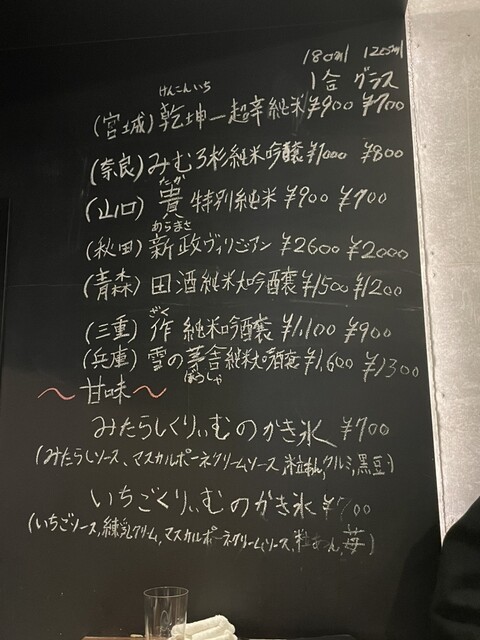 180ml 125ml
1合 グラス
けんこんいち
(宮城) 乾坤一超辛純米 ¥900 ¥700
(奈良) みむろ杉純米吟醸 ¥1000 ¥800
たか
(山口) 貴 特別純米 ¥900 ¥700
あらまさ
(秋田) 新政ヴィリジアン ¥2600 ¥2000
(青森) 田酒純米大吟醸 ¥1500 ¥1200
ざく
(三重) 作 純米吟醸 ¥1,100 ¥900
(兵庫) 雪の茅舎純米大吟醸 ¥1,600 ¥1300
ぼうしゃ
～甘味～
みたらしくりぃむのかき氷 ¥700
(みたらしソース、マスカルポーネクリームソース、粒あん、クルミ、黒豆)
いちごくりぃむのかき氷 ¥700
(いちごソース、練乳クリーム、マスカルポーネクリームソース、粒あん、苺)